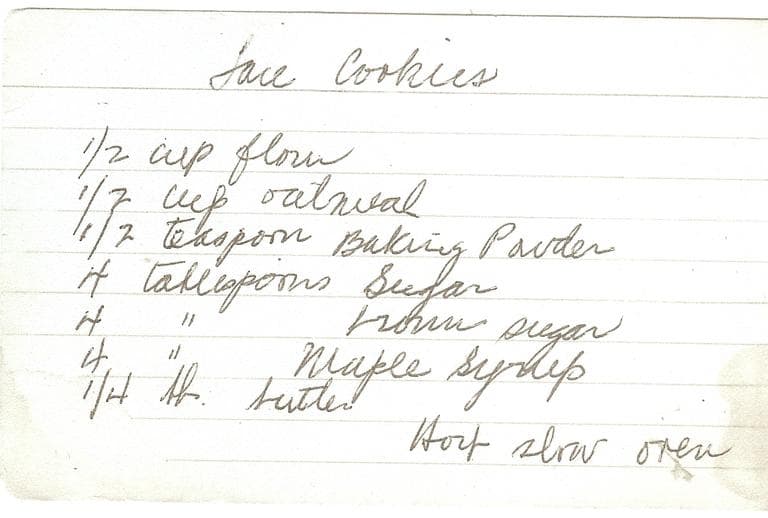 Lace Cookies
1/2 cup flour
1/2 cup oatmeal
1/2 teaspoon Baking Powder
4 tablespoons Sugar
4 " brown sugar
4 " Maple Syrup
1/4 lb. butter
Hot slow oven